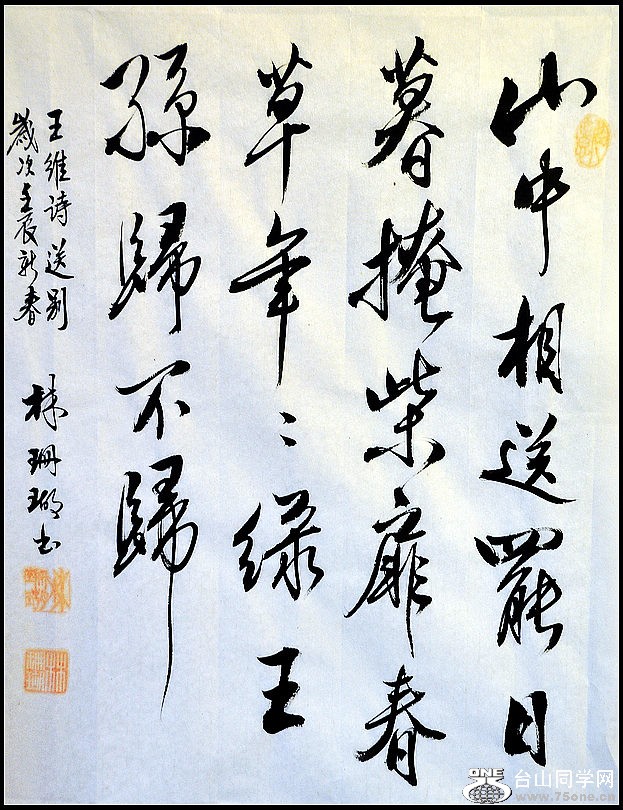 山中相送罷日
暮掩柴扉春
草年〻綠王
孫歸不歸
王維詩送別
歲次壬辰新春
林珊瑚书
ONE
台山同学网
www.75one.cn